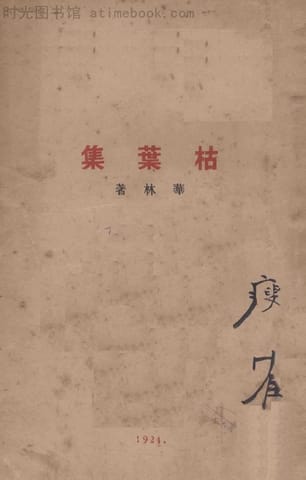 时光图书馆 - atimebook.com
枯葉集
華林著
瘦崔
1924.